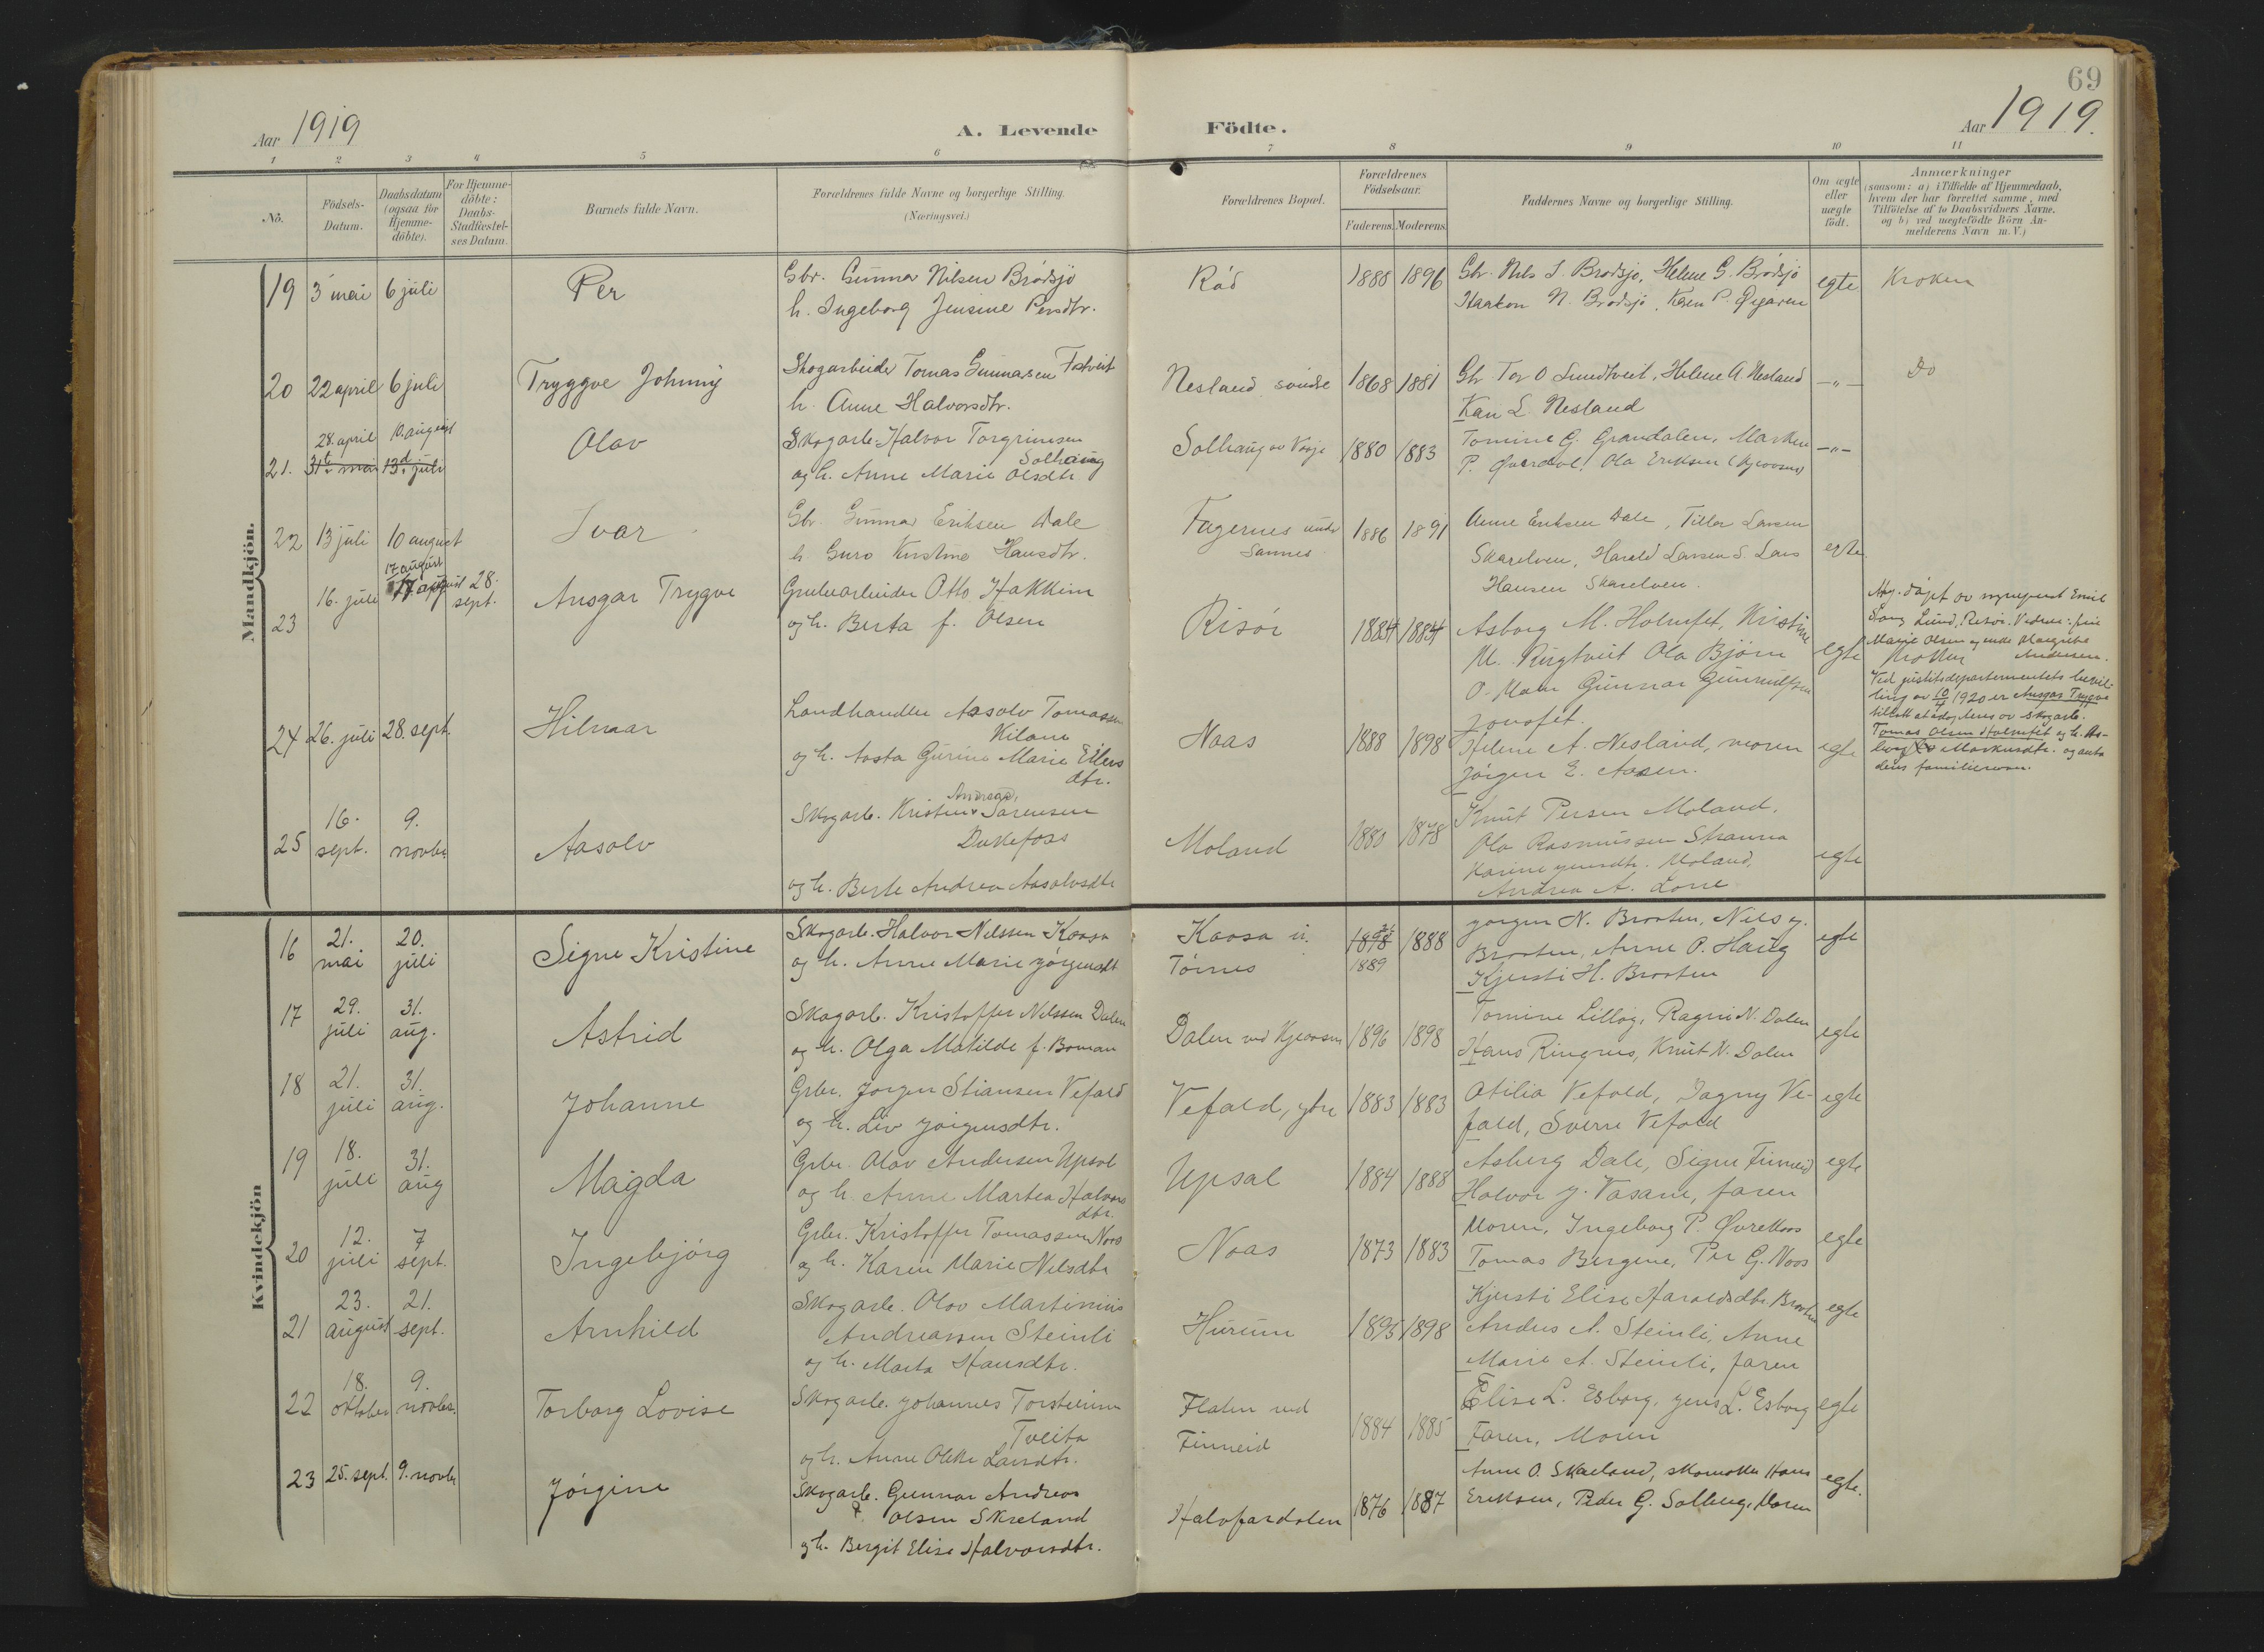 69
Aar 1919
A. Levende
Födte.
Aar 1919.
1 2 3 4 5 6 7 8 9 10 11
No.
Födsels-Datum.
Daabsdatum (ogsaa for Hjemme-döbte).
For Hjemme-döbte: Daabs-Stadfæstel-ses Datum.
Barnets fulde Navn.
Forældrenes fulde Navne og borgerlige Stilling.
(Næringsvei.)
Forældrenes Bopæl.
Forældrenes Födselsaar.
Faderens. Moderens.
Faddernes Navne og borgerlige Stilling.
Om ægte eller uægte födt.
Anmærkninger
(saasom: a) i Tilfælde af Hjemmedaab,
hvem der har forrettet samme, med
Tilföielse af to Daabsvidners Navne.
og b) ved uægtefödte Börn An-
melderens Navn m. V.)
Mandkjön.
19 3 mai 6 juli Per
Gbr. Gunnar Nilsen Brödsjö
h. Ingeborg Jensine Persdtr.
Räd 1888 1896
Gbr. Nils S. Brödsjö, Helene G. Brödsjö
Haakon N. Brödsjö, Karen P. Øygaren
egte Kroken
20 22 april 6 juli Tryggve Johnny
Skogarbeider Tomas Gunnarsen Fostveit
h. Anne Halvorsdtr.
Nesland söndre 1868 1881
Gbr Tor O Lundtveit, Helene A. Nesland
Kari L. Nesland
—"— Do
21. 28. april 10. august
31te mai 13d. juli
Olav
Skogarb. Halvor Torgrimsen
Solhaug
og h. Anne Marie Olsdtr
Solhaug av Vegje 1880 1883
Tomine G. Grandalen, Marken
P. Øverdal, Ola Eriksen (Kjeøosen)
—"—
22 13 juli 10 august Ivar
Gbr. Gunnar Eriksen Dale
h. Guro Kristine Hansdtr.
Fagernes under
Sannes
1886 1891
Anne Eriksen Dale, Tilla Larsen
Skarelven, Harald Larsen S. Lars
Hansen Skarelven.
egte
23 16. juli 17. august
17 august 28. sept.
Ansgar Trygve
Grubearbeider Otto Hakkim
og h. Berta f. Olsen
Risör 1884 1884
Asborg M. Holmfet, Kristine
M. Rugtveit Ola Björn
O. Moen Gunnar Gunnulfsen
Jonsfet.
egte
Hj. döpt av sogneprest Emil
Stang Lund, Risör. Vidner: frue
Marie Olsen og enke Margrethe
Andersen.
Kroken
Ved justitsdepartementets bevil-
ling av 10/4 1920 er Ansgar Trygve
tillatt at adopteres av skogarb.
Tomas Olsen Holmfet og h. As-
borg Markusdtr. og anta
deres familienavn.
24 26. juli 28. sept. Hilmar
Landhandler Aasolv Tomassen
Kilane
og h. Aasta Gurine Marie Eilevs
dtr.
Naas 1888 1898
Helene A. Nesland, moren
Jörgen E. Aasen.
egte
25 16. sept. 9. novbr Aasolv
Andreas
Skogarb. Kristen Sörensen
Dukefoss
og h. Berte Andrea Aasolvsdtr
Moland 1880 1878
Knut Persen Moland.
Ola Rasmussen Stranna
Karine Jensdtr. Moland,
Andrea A. Lone
egte
Kvindekjön
16 21. mai 20. juli Signe Kristine
Skogarb. Halvor Nilssen Kaasa
og h. Anne Marie Jörgensdtr
Kaasa u.
Törnes
1878 1889 1888
Jörgen N. Brooten, Nils J.
Brooten, Anne P. Haug
Kjersti H. Brooten
egte
17 29. juli 31. aug. Astrid
Skogarb. Kristoffer Nilssen Dalen
og h. Olga Matilde f. Boman
Dalen ved Kjeøosen 1896 1898
Tomine Lillög, Ragni N. Dalen
Hans Ringnes, Knut N. Dalen
egte
18 21. juli 31. aug. Johanne
Grbr. Jörgen Stiansen Vefald
og h. Liv Jörgensdtr.
Vefald, ytre 1883 1883
Otilia Vefald, Dagny Ve-
fald, Sverre Vefald
egte
19 18. juli 31. aug Magda
Grbr. Olav Andersen Upsal
og h. Anne Martea Halvors
dtr.
Upsal 1884 1888
Asberg Dale, Signe Finneid
Halvor J. Vasane, faren
egte
20 12. juli 7 sept. Ingebjörg
Grbr. Kristoffer Tomassen Naas
og h. Karen Marie Nilsdtr
Naas 1873 1883
Moren, Ingeborg P. ØvreNaas
Tomas Bergene, Per G. Naas
egte
21 23. august 21. sept. Arnhild
Skogarb. Olav Martinius
Andreassen Steinli
og h. Marta Hansdtr.
Hurum 1895 1898
Kjersti Elise Haraldsdtr. Brooten
Anders A. Steinli, Anne
Marie A. Steinli, faren
egte
22 18. oktober 9. novbr. Torborg Lovise
Skogarb. Johannes Torsteinsen
Tveita
og h. Anne Olette Larsdtr.
Flaten ved
Finneid
1884 1885
Elise L. Esborg, Jens L. Esborg
Faren, Moren
egte
23 25. sept. 9. novbr Jörgine
Skogarb. Gunnar Andreas
Olsen Skreland
og h. Bergit Elise Halvorsdtr.
Halvfardalen 1876 1887
Anne O. Skreland, skomaker Hans
Eriksen, Peder G. Solberg, Moren
egte.